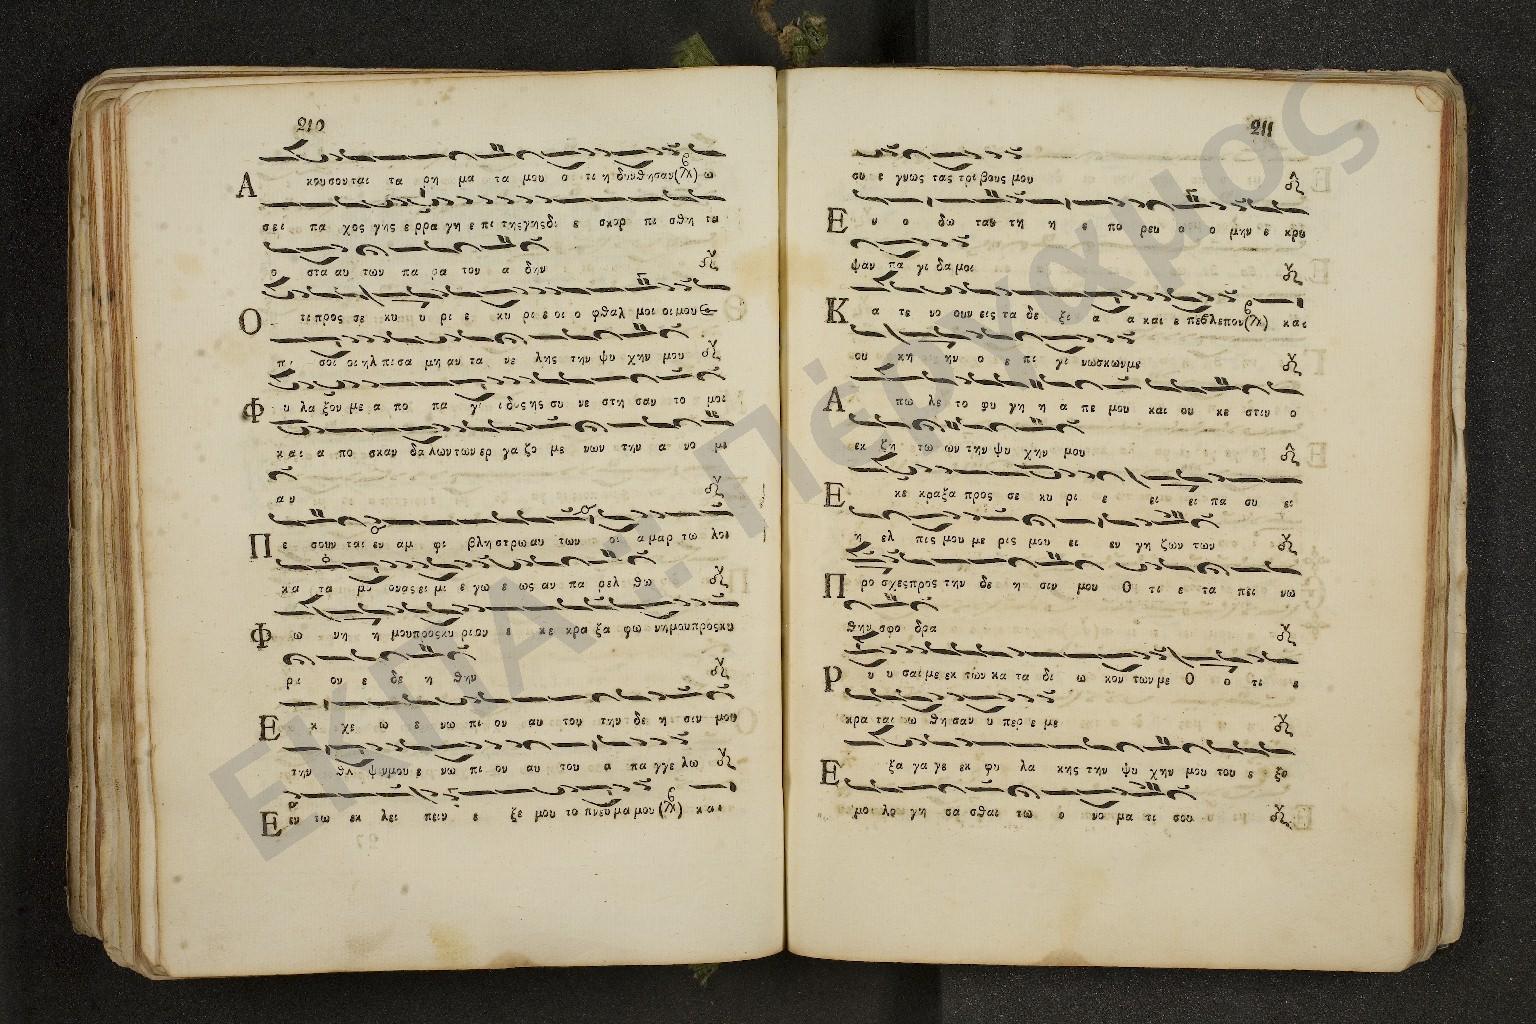 210
Α κουσονται τα ρη μα τα μου ο τι η δυνθησαν (γχ) ω
σει πα χος γης ε ρρα γη ε πι της γης δι ε σκορ πι σθη τα
ο στα αυ των πα ρα τον α δην
Ο τι προς σε κυ υ ρι ε κυ ρι ε οι ο φθαλ μοι οι μου ε
πι σοι οι ηλ πι σα μη αν τα νε λης την ψυ χην μου
Φ υ λα ξον με α πο πα γι ιδος ης συ νε στη σαν το μοι
και α πο σκαν δα λων των ερ γα ζο με νων την α νο μι
αν
Π ε σουν ται εν αμ φι βλη στρω αυ των οι αμαρ τω λοι
κα τα μο ονας ει μι ε γω ε ως αν πα ρελ θω
Φ ω νη η μου προς κυ ριον ε κε κρα ξα φω νη μου προς κυ
ρι ον ε δε η θην
Ε κ χε ω ε νω πι ον αυ του την δε η σιν μου
την θλ ψιν μου ε νω πι ον αυ του α πα γγε λω
Ε εν τω εκ λει πειν ε ξε μου το πνευ μα μου (γχ) και
211
συ ε γνως τας τρι βους μου
Ε ν ο δω ταυ τη η ε πο ρευ ο ο μην ε κρυ
ψαν πα γι δα μοι
Κ α τε νο ουν εις τα δε ξι α α και ε πεβλεπον (γχ) και
ου κη ην ο ε πι γι νωσκων με
Α πω λε το φυ γη η α πε μου και ου κε στιν ο
εκ ζη τω ων την ψυ χην μου
Ε κε κραξα προς σε κυ ρι ε ει ει πα συ ει
η ελ πις μου με ρις μου ει εν γη ζων των
Π ρο σχες προς την δε η σιν μου Ο τι ε τα πει νω
θην σφο δρα
Ρ υ υ σαι με εκ των κα τα δι ω κον των με Ο ο τι ε
κρα ται ω θη σαν υ περ ε με
Ε ξα γα γε εκ φυ λα κης την ψυ χην μου του ε ξο
μο λο γη σα σθαι τω ο νο μα τι σου
ΕΚΠΑ: Πέργαμος